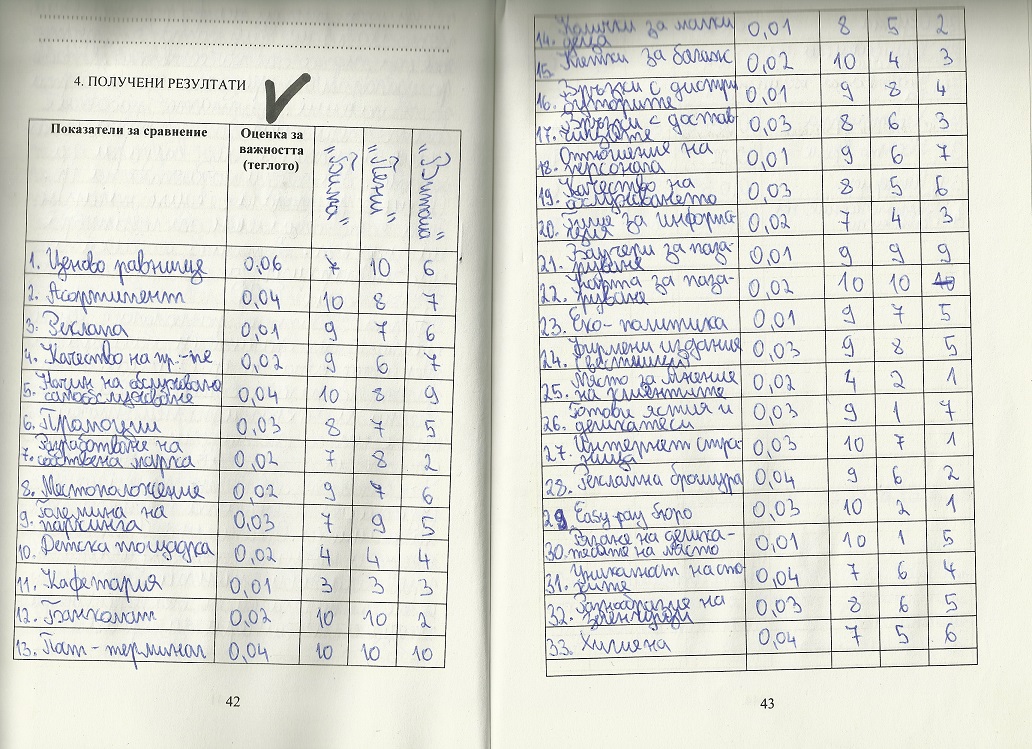 4. ПОЛУЧЕНИ РЕЗУЛТАТИ
Показатели за сравнение Оценка за важността (теглото) "Билла" "Пени" "Витали"
1. Ценово равнище 0,06 7 10 6
2. Асортимент 0,04 10 8 7
3. Реклама 0,01 9 7 6
4. Качество на пр.-те 0,02 9 6 7
5. Начин на обслужване
самообслужване 0,04 10 8 9
6. Промоции 0,03 8 7 5
7. Разработване на
собствена марка 0,02 7 8 2
8. Местоположение 0,02 9 7 6
9. Големина на
паркинга 0,03 7 9 5
10. Детска площадка 0,02 4 4 4
11. Кафетария 0,01 3 3 3
12. Банкомат 0,02 10 10 2
13. Пат-терминал 0,04 10 10 10
42
14. Колички за малки
деца 0,01 8 5 2
15. Клетки за багаж 0,02 10 4 3
16. Връзки с дистри
буторите 0,01 9 8 4
17. Връзки с достав-
чиците 0,03 8 6 3
18. Отношение на
персонала 0,01 9 6 7
19. Качество на
обслужването 0,03 8 5 6
20. Гише за информа-
ция 0,02 7 4 3
21. Ваучери за паза-
руване 0,01 9 9 9
22. Карта за паза-
руване 0,02 10 10 10
23. Еко-политика 0,01 9 7 5
24. Фирмени издания
(вестници) 0,03 9 8 5
25. Място за мнение
на клиентите 0,02 4 2 1
26. Готови ястия и
деликатеси 0,03 9 1 7
27. Интернет стра-
ница 0,03 10 7 1
28. Рекламна брошура 0,04 9 6 2
29 Easy pay бюро 0,03 10 2 1
30. на делика-
тесите на място 0,01 10 1 5
31. Уникалност на сто-
ките 0,04 7 6 4
32. Разнообразие на
зеленчуци 0,03 8 6 5
33. Хигиена 0,04 7 5 6
43